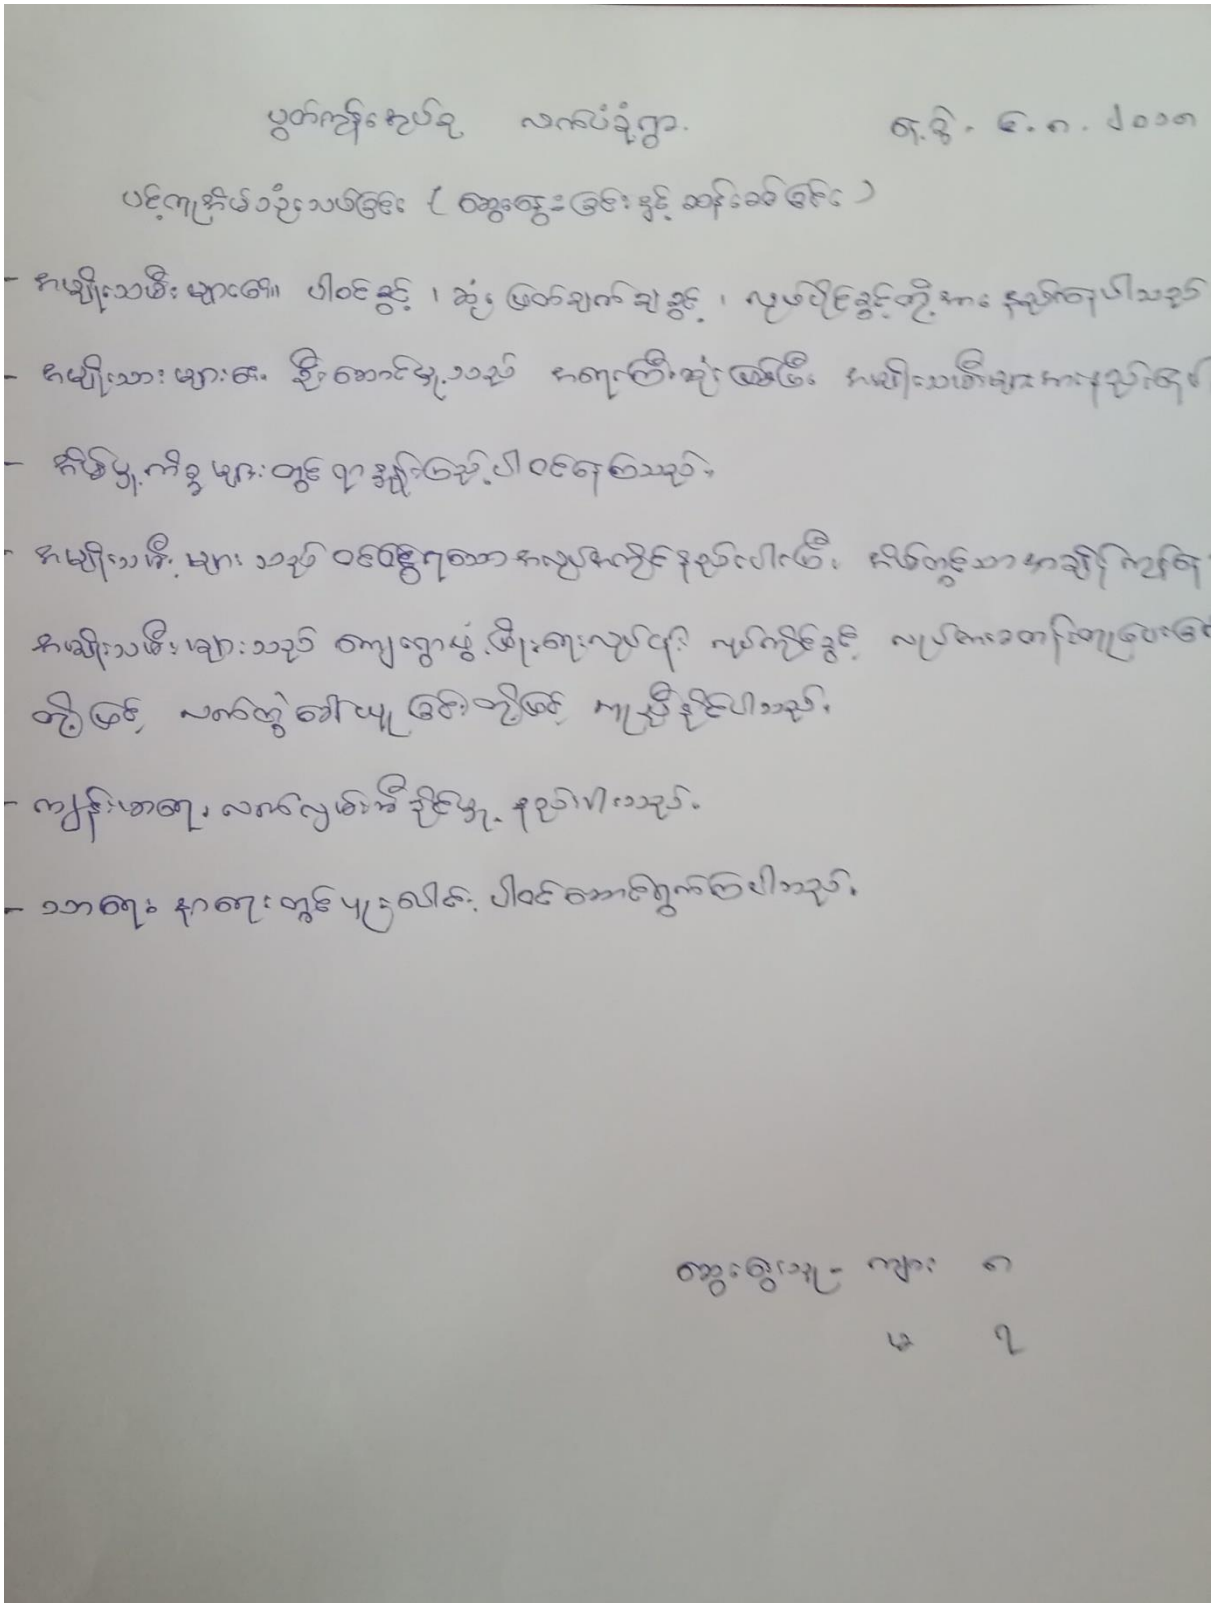 ပွတ်ကျွန်းအုပ်စု လက်ပံခုံရွာ. ရ.စွဲ. ၄.၈. ၂၀၁၈
ပင့်ကူအိမ်သုံးသပ်ခြင်း ( ဆွေးနွေးခြင်းနှင့် ဆန်းစစ်ခြင်း )
- အမျိုးသမီးများ၏ ပါဝင်ခွင့် ၊ ဆုံးဖြတ်ချက်ချခွင့် ၊ လုပ်ပိုင်ခွင့်တို့အား နည်းနေပါသည်
- အမျိုးသားများ၏ ဦးဆောင်မှုသည် အရေးကြီးဆုံးဖြစ်ပြီး အမျိုးသမီးများအားနည်း
- အိမ်မှုကိစ္စများတွင် ရာနှုန်းပြည့်ပါဝင်နေကြသည်။
- အမျိုးသမီးများ သည် ဝင်ငွေရသောအလုပ်အကိုင်နည်းပါးပြီး အိမ်တွင်သာအချိန်ကုန်
အမျိုးသမီးများသည် ကျေးရွာဖွံ့ဖြိုးရေးလုပ်ငန်း လုပ်ကိုင်ခွင့် သင်တန်း
တို့ဖြင့် လက်တွဲခေါ်ယူခြင်းတို့ဖြင့် ကူညီနိုင်ပါသည်။
- ကျန်းမာရေး လက်လှမ်းမီနိုင်မှု နည်းပါးသည်။
- သာရေး နာရေးတွင်မူ ပူးပေါင်း ပါဝင်ဆောင်ရွက်ကြပါသည်။
ဆွေးနွေးသူ - ကျား ၈
မ ၇